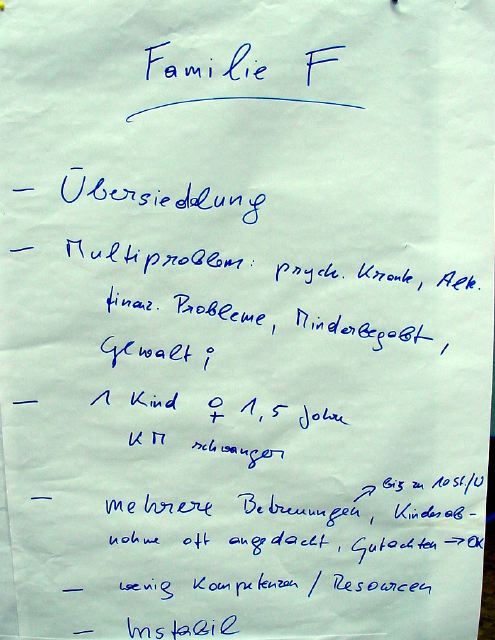 Familie F
– Übersiedlung
– Multiproblem: psych. Krank, Alk.
finanz. Probleme, Minderbegabt,
Gewalt;
– 1 Kind ♀ 1,5 Jahre
KM schwanger
– mehrere Betreuungen, Kindesab-
→ bis zu 10 St./W
nahme oft angedacht, Gutachten → OK
– wenig Kompetenzen / Resourcen
– Instabil